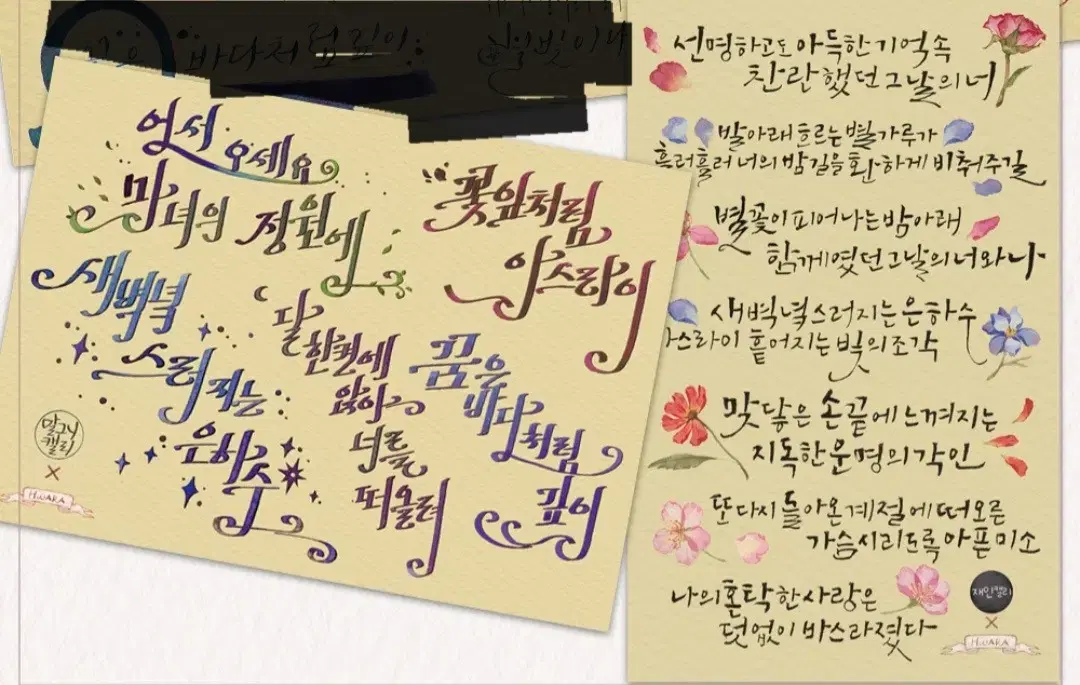 바다처럼 깊이
별빛이나
어서
오세요
마녀의 정원에
새벽녘
스러지는
은하수
달
한켠에
앉아
너를
떠올려
꽃잎처럼
아스라이
꿈은
바다처럼
깊이
말그닉
캘리
×
HWARA
선명하고도 아득한 기억 속
찬란했던 그날의 너
발 아래 흐르는 별가루가
흘러 흘러 너의 밤길을 환하게 비춰주길
별꽃이 피어나는 밤 아래
함께였던 그날의 너와 나
새벽녘 스러지는 은하수
아스라이 흩어지는 빛의 조각
맞닿은 손끝에 느껴지는
지독한 운명의 각인
또 다시 돌아온 계절에 떠오른
가슴 시리도록 아픈 미소
나의 혼탁한 사랑은
덧없이 바스라졌다
재인캘리
×
HWARA